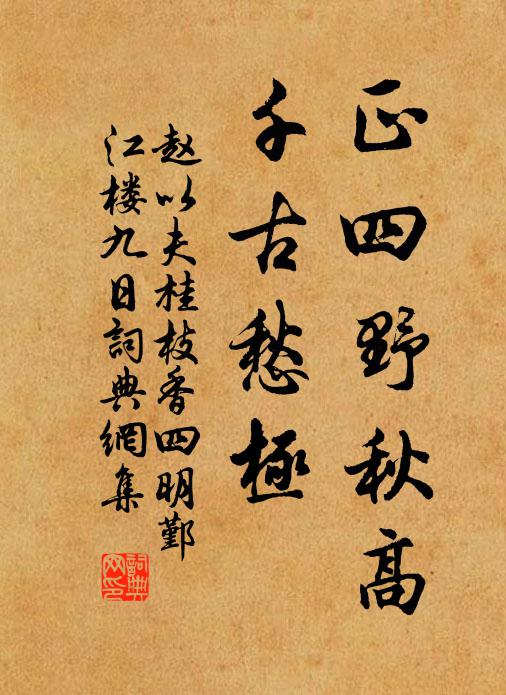 正四野秋高
千古愁極
赵以夫桂枝香四明鄞
江楼九日詞典網集
詞典网印